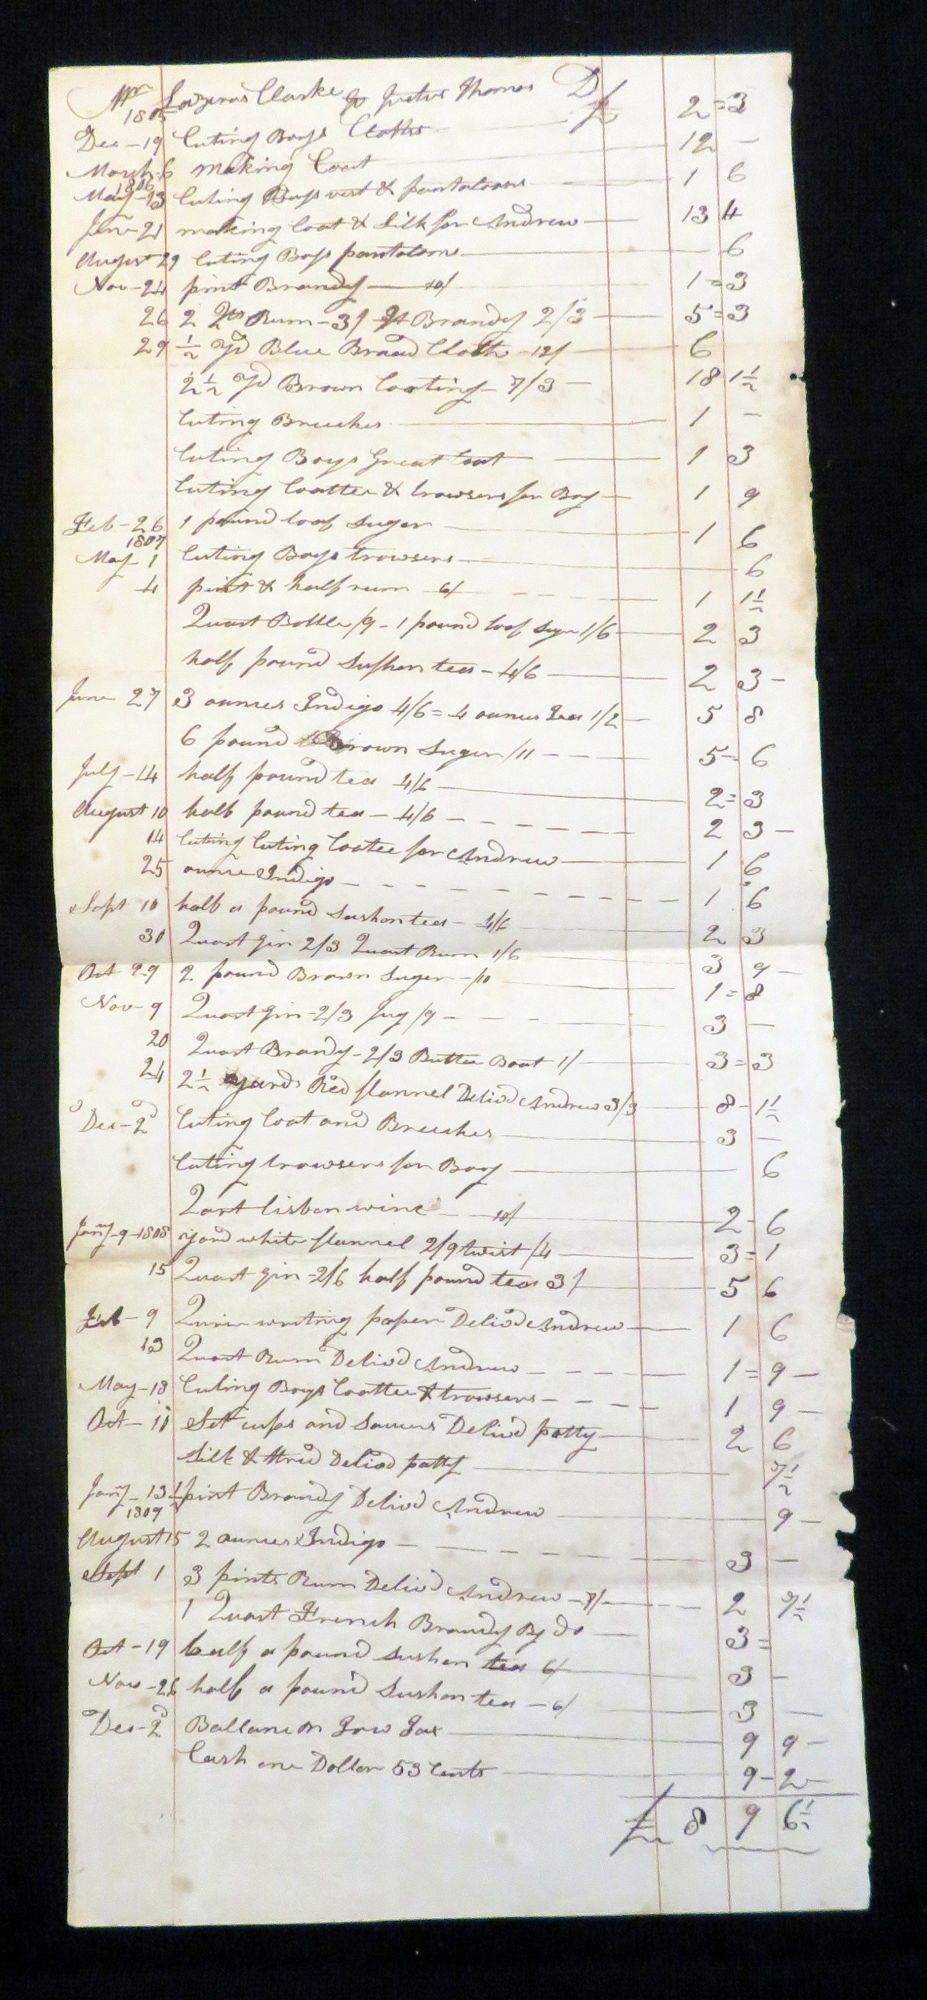 Mr Lazarus Clarke to Justus Thomas Dr
1805 £
Dec - 19 Cuting Boys Cloths 2=3
March 6 making Coat 12 -
1806
May - 13 Cuting Boys vest & pantaloons 1 6
June - 21 making Coat & Silk for Andrew 13 4
August 29 Cuting Boys pantaloons 6
Nov - 24 pint Brandy - 10/ 1=3
26 2 Qts Rum - 3/ Qt Brandy 2/3 5=3
29 ½ Yd Blue Broad Cloth - 12/ 6
2½ Yd Brown Coating - 7/3 - 18 1½
Cuting Breeches 1 -
Cuting Boys Great Coat 1 3
Cuting Coattee & trowsers for Boy 1 9
Feb - 26 1 pound loaf Suger 1 6
1807
May - 1 Cuting Boys trowsers 6
4 pint & half rum 6/ 1 1½
Quart Bottle /9 - 1 pound loaf Suger 1/6 2 3
half pound Sushon tea - 4/6 2 3 -
June 27 3 ounces Indigo 4/6 = 4 ounces Tea 1/2 5 8
6 pound Brown Suger /11 5= 6
July - 14 half pound tea 4/6 2=3
August 10 half pound tea - 4/6 2 3 -
14 Cuting Cuting Coatee for Andrew 1 6
25 ounce Indigo 1 6
Sept 10 half a pound Sushon tea - 4/6 2 3
30 Quart gin 2/3 Quart Rum 1/6 3 9 -
Oct 29 2 pound Brown Suger - /10 1=8
Nov - 9 Quart gin - 2/3 Jug /9 3 -
20 Quart Brandy - 2/3 Butter Boat 1/ 3=3
24 2½ yards Red flannel Delivd Andrew 3/3 8 - 1½
Dec - 2d Cuting Coat and Breeches 3 -
Cuting trowsers for Boy 6
Qart lisbon wine 10/ 2 - 6
Jany - 9 - 1808 yard white flannel 2/9 twist /4 3=1
15 Quart gin - 2/6 half pound tea 3/ 5 6
Feb - 9 Quire writing paper Delivd Andrew 1 6
13 Quart Rum Delivd Andrew 1=9 -
May - 18 Cuting Boys Coattee & trowsers 1 9 -
Oct - 11 Set cups and Saucers Delivd patty 2 6
Silk & thrid Delivd patty 7½
Jany - 13 ½ pint Brandy Delivd Andrew 9 -
1809
August 15 2 ounces Indigo 3 -
Sept 1 3 pints Rum Delivd Andrew - 7/ 2 7½
1 Quart French Brandy By do 3=
Oct - 19 half a pound sushon tea 6/ 3 -
Nov - 26 half a pound Sushon tea - 6/ 3 -
Dec - 2d Ballanc on Tax 9 9 -
Cash one Dollar 53 Cents 9 - 2 -
£ 8 9 6½